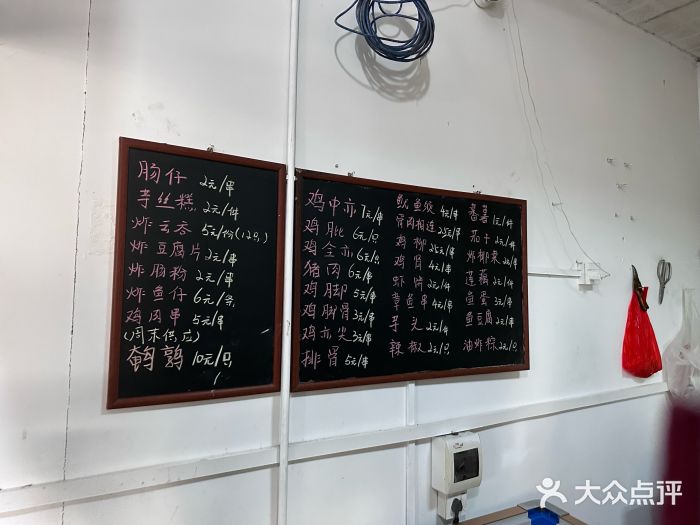 肠仔 2元/串
芋丝糕 2元/件
炸云吞 5元/份(12只)
炸豆腐片 2元/串
炸肠粉 2元/串
炸鱼仔 6元/条
鸡肉串 5元/串
(周末供应)
鹌鹑 10元/只
鸡中亦 7元/串
鸡肶 6元/只
鸡全亦 6元/只
猪肉 6元/串
鸡脚 5元/串
鸡脚骨 3元/串
鸡亦尖 3元/串
排骨 5元/串
鱿鱼须 4元/串
骨肉相连 2.5元/串
鸡柳 2.5元/串
鸡肾 4元/串
虾饼 2元/件
草鱼串 4元/串
芋头 2元/件
辣椒 2元/只
番薯 1元/件
茄子 2元/件
炸椰菜 2元/串
莲藕 2元/件
鱼蛋 3元/串
鱼豆腐 2元/串
油炸粽 2元/只
大众点评